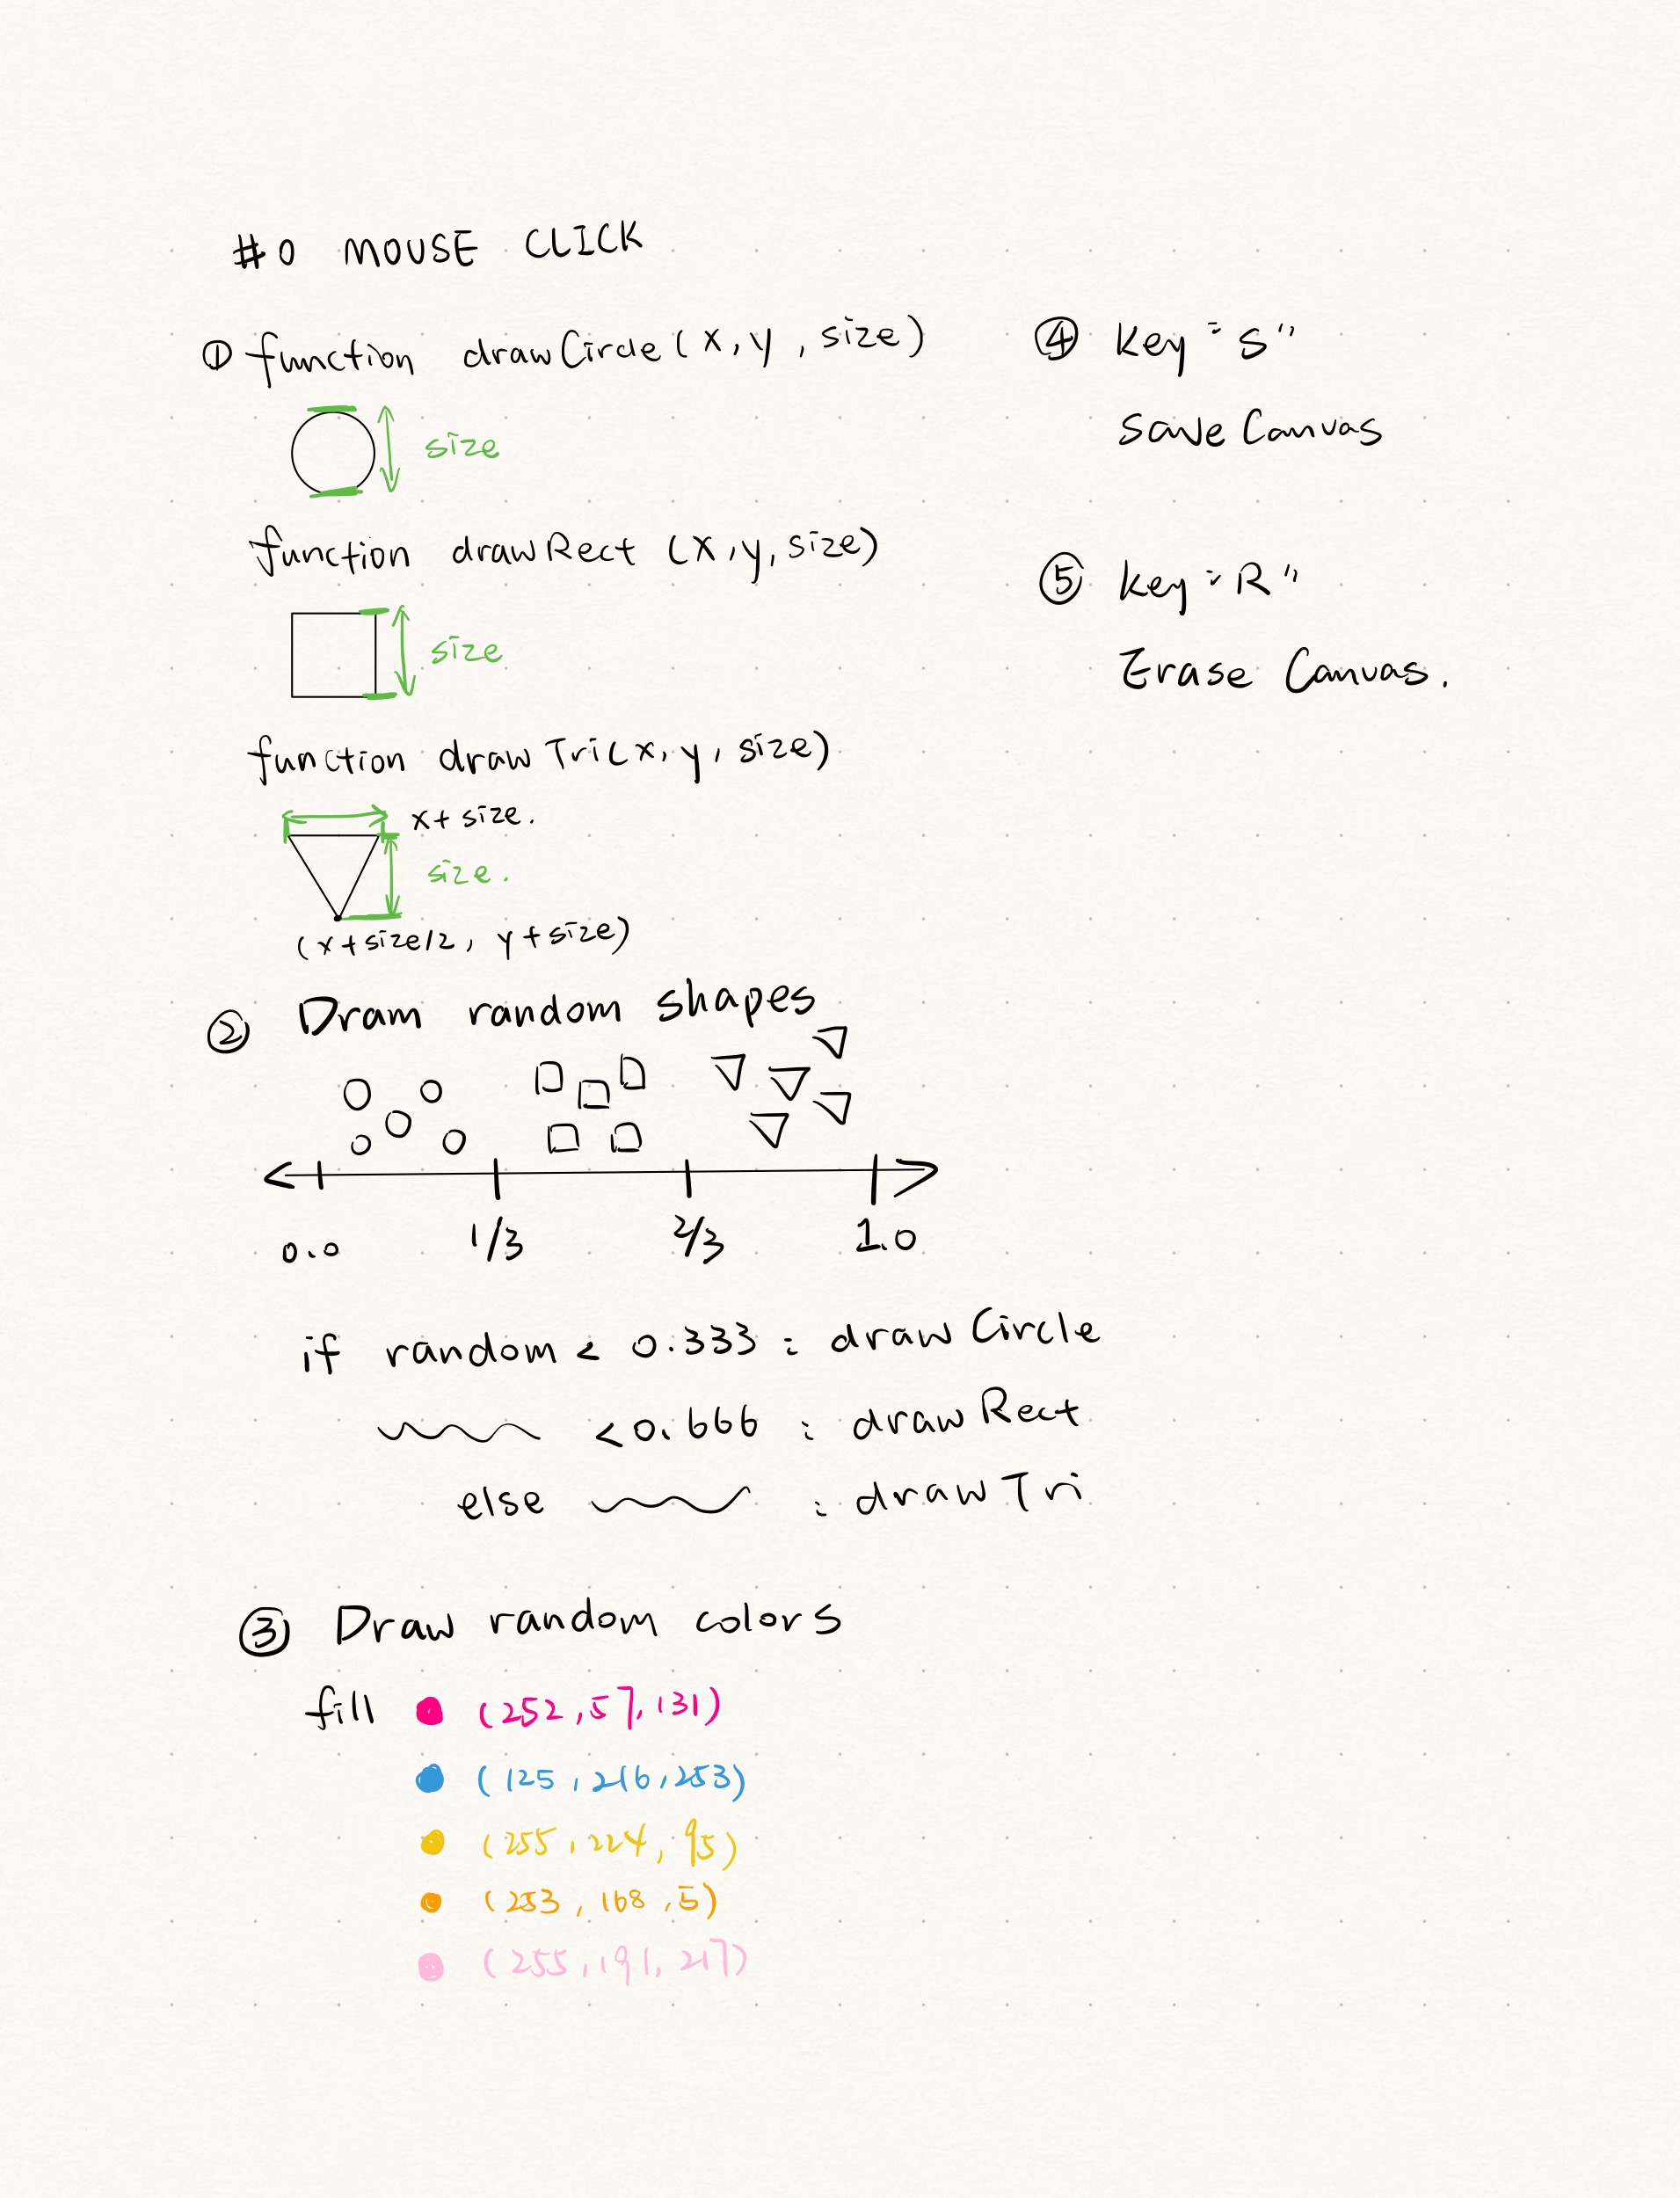 #0 MOUSE CLICK
① function drawCircle (x, y, size)
size
function drawRect (x, y, size)
size
function drawTri(x, y, size)
x + size.
size.
(x + size/2, y + size)
② Dram random shapes
0.0 1/3 2/3 1.0
if random < 0.333 : drawCircle
<0.666 : drawRect
else : drawTri
③ Draw random colors
fill (252, 57, 131)
(125, 216, 253)
(255, 224, 95)
(253, 168, 5)
(255, 191, 217)
④ key "S"
Save Canvas
⑤ key "R"
Erase Canvas.